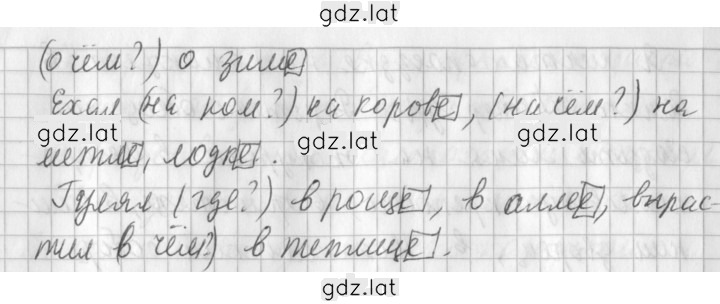 gdz.lat
(о чём?) о зиме
Ехал (на ком?) на корове, (на чём?) на
gdz.lat gdz.lat gdz.lat
метле, лодке.
Гулял (где?) в роще, в аллее, вырас-
тил (в чём?) в теплице.
gdz.lat